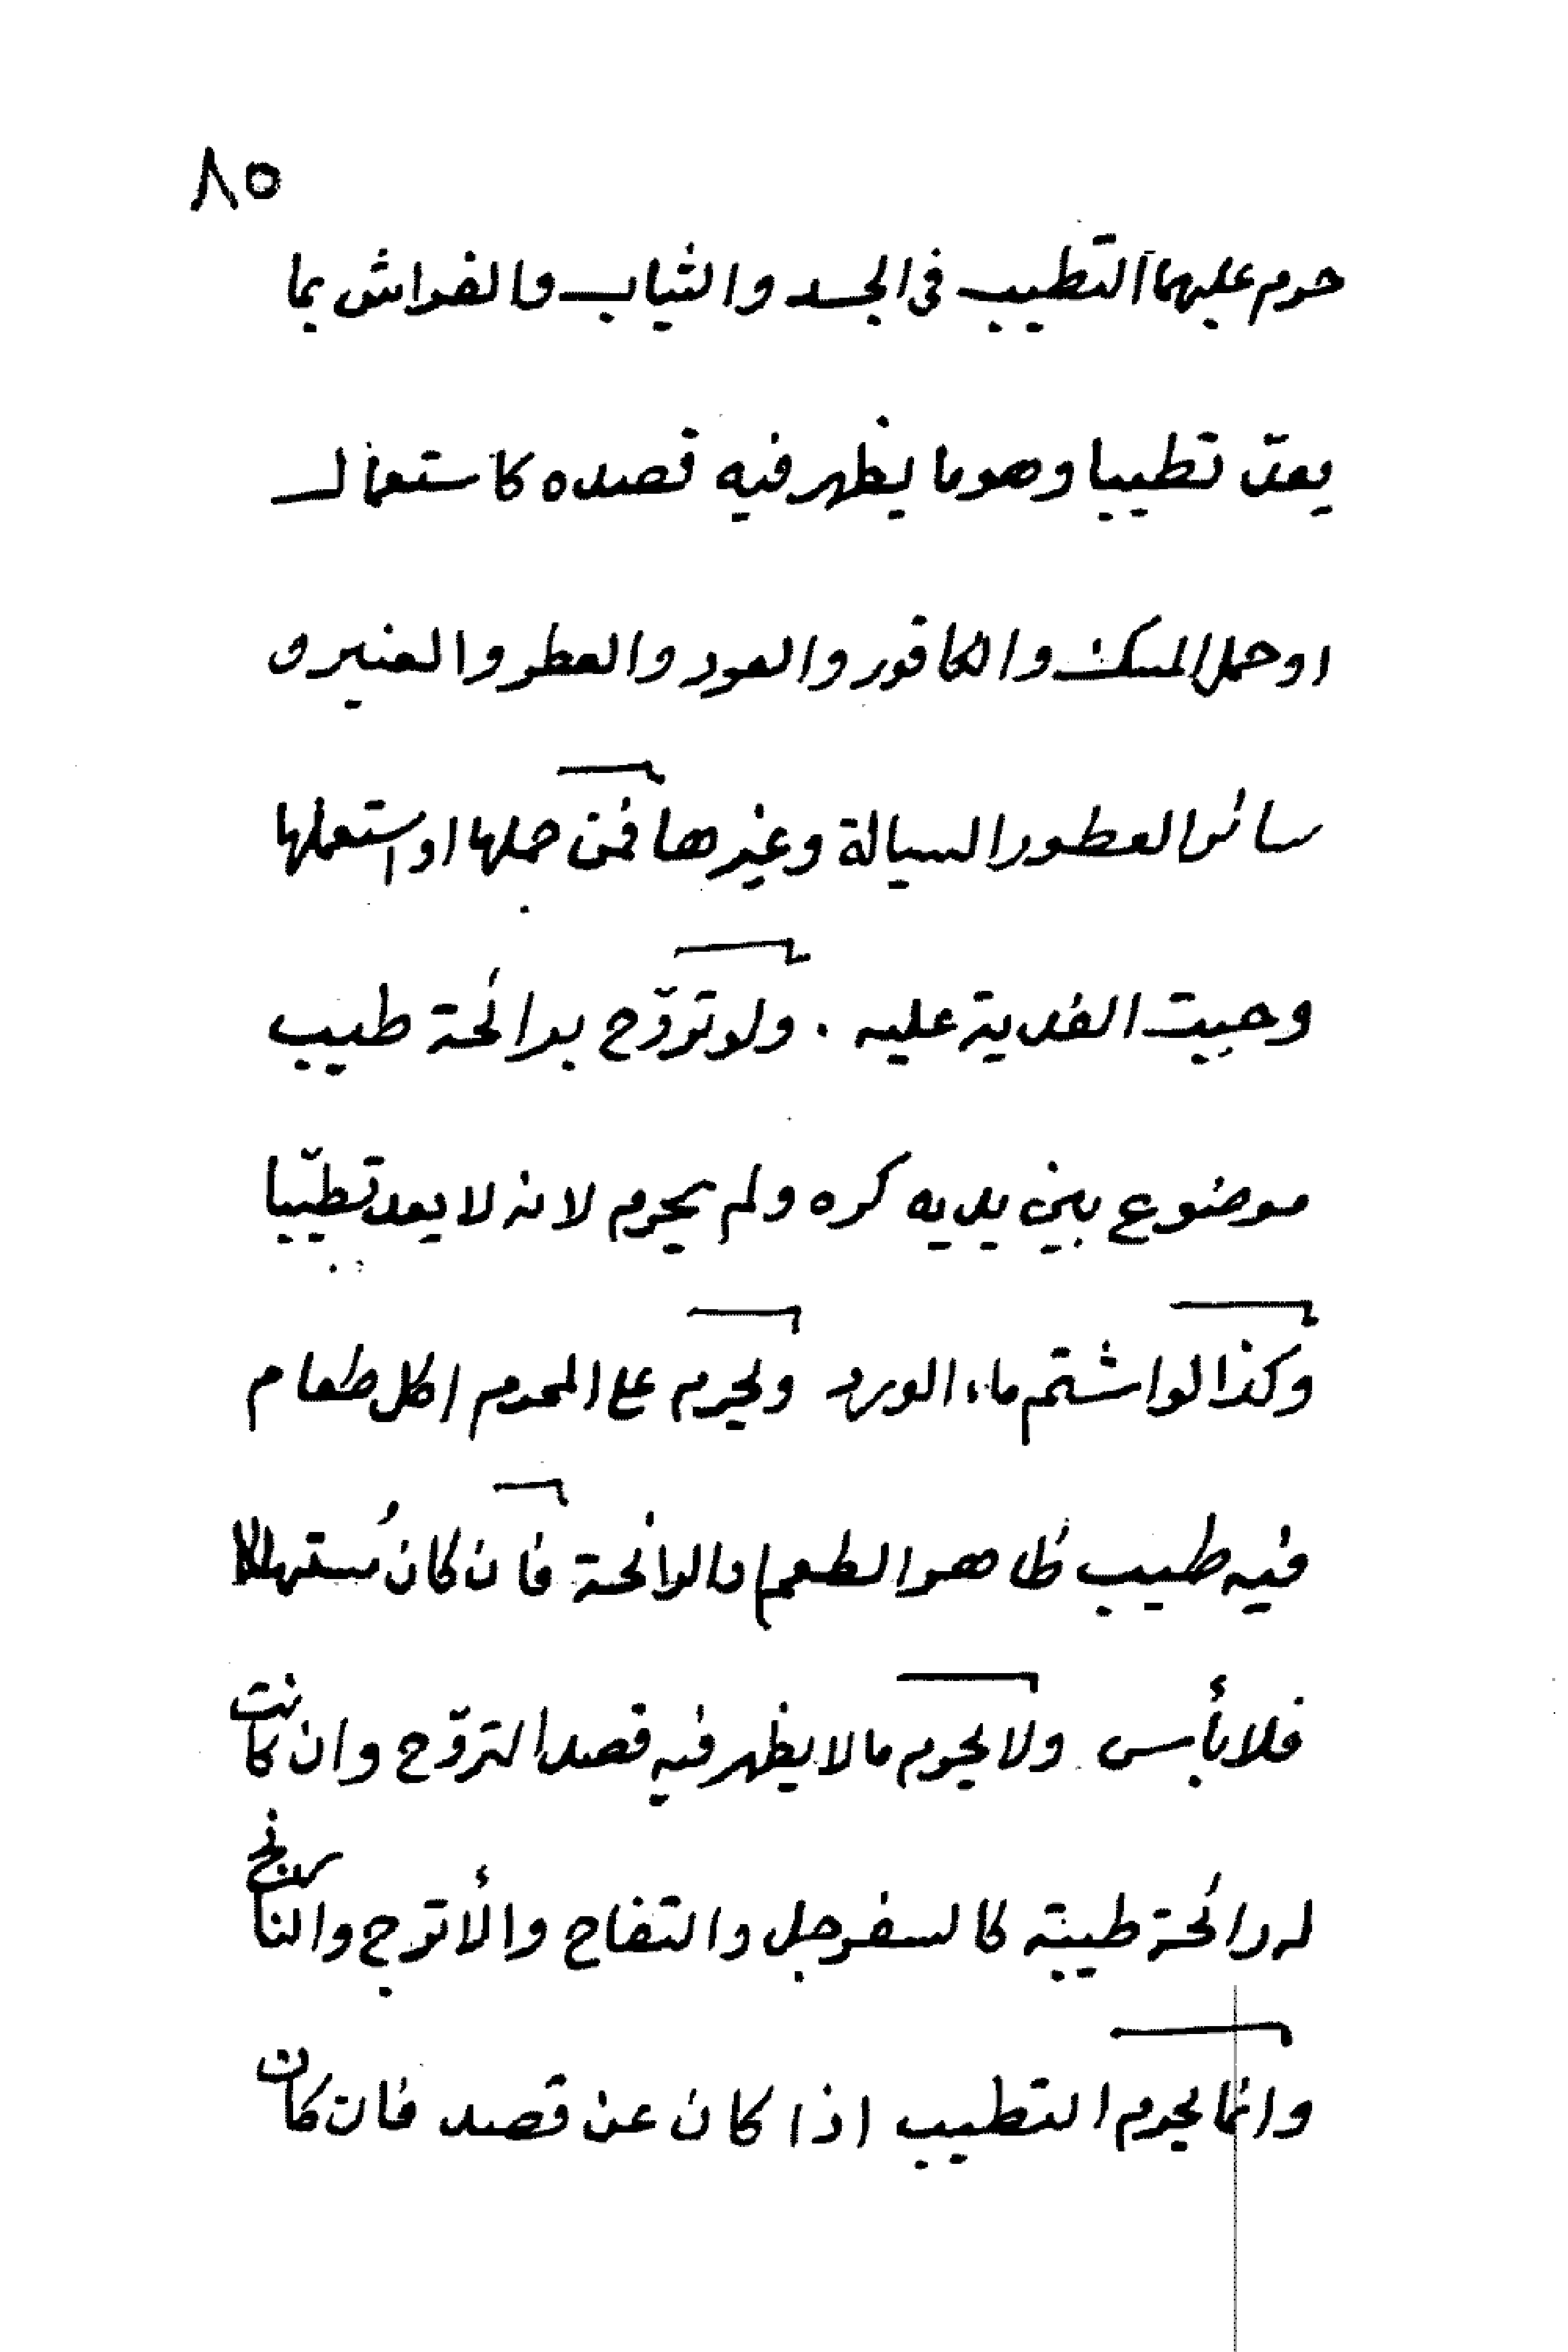 ٨٥
حرم عليهما التطيب فى الجسد والثياب والفراش بما
يعدّ تطيبا وهو ما يظهر فيه قصده كاستعمال
او حمل المسك والكافور والعود والعطر والعنبر و
سائر العطور السيالة وغيرها فمن حملها او استعملها
وجبت الفدية عليه . ولو تروّح برائحة طيب
موضوع بين يديه كره ولم يحرم لانه لا يعد تطيّبا
وكذا لو اشتم ماء الورد ويحرم على المحرم اكل طعام
فيه طيب ظاهر الطعم والرائحة فان كان مُستهلكا
فلا بأس ولا يحرم ما لا يظهر فيه قصد التروّح وان كانت
له رائحة طيبة كالسفرجل والتفاح والأترج والنارنج
وانما يحرم التطيب اذا كان عن قصد فان كان